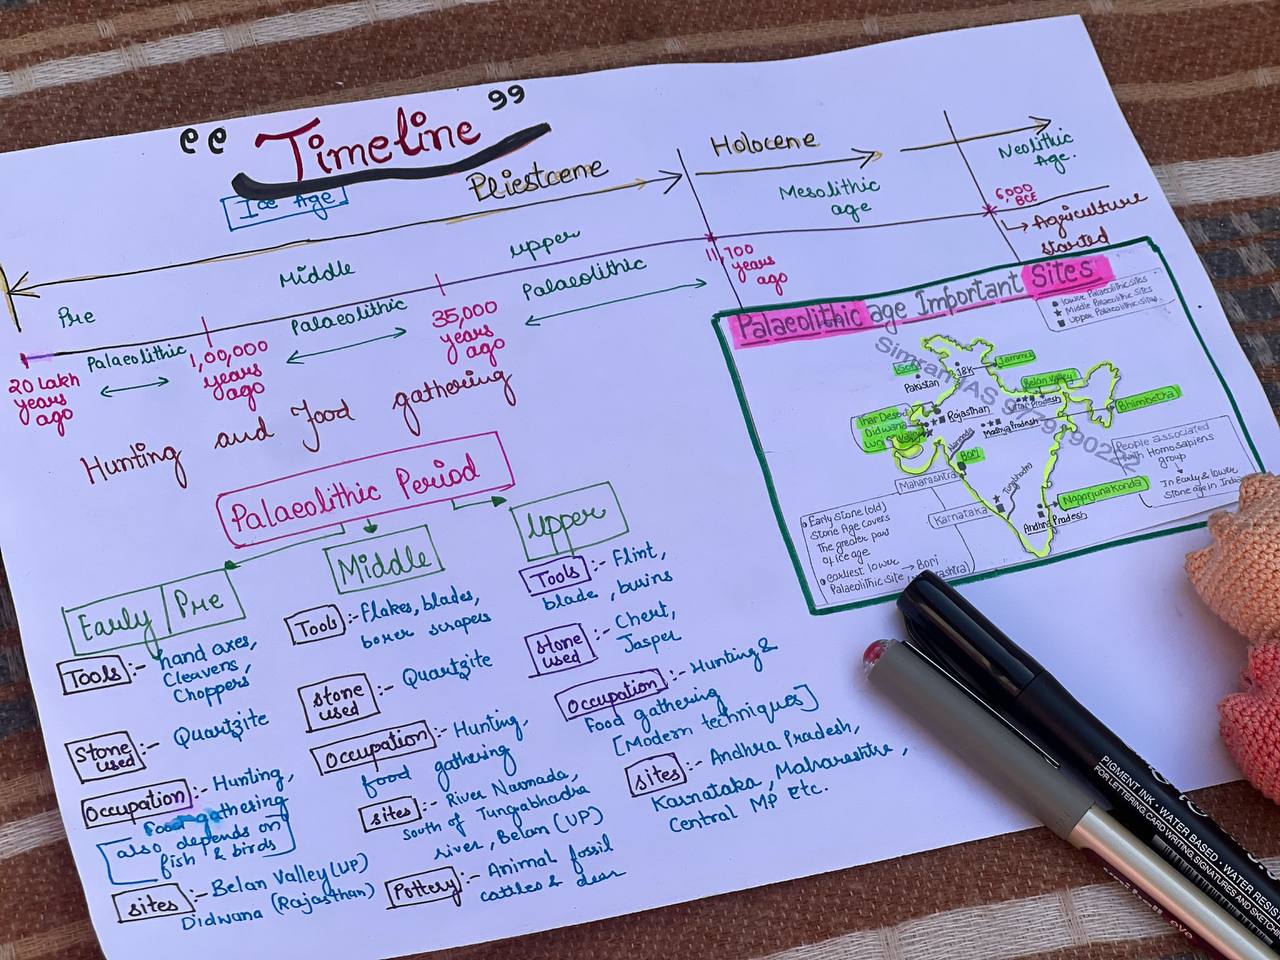 “ Timeline ”
Ice Age
Pliestcene
Holocene
Mesolithic
age
Neolithic
Age.
6,000
BCE
↳ Agriculture
started
Pre
Palaeolithic
Middle
Palaeolithic
upper
Palaeolithic
20 lakh
years
ago
1,00,000
years
ago
35,000
years
ago
11,700
years
ago
Hunting and food gathering
Palaeolithic age Important Sites
● lower Palaeolithic sites
★ Middle Palaeolithic sites
■ upper Palaeolithic sites
Simran IAS
Soan
Pakistan
Jammu
Belan Valley
Uttar Pradesh
Bhimbetka
Thar Desert
Didwana
Rajasthan
Madhya Pradesh
Narmada
Bori
Maharashtra
Tungbhadra
Karnataka
Nagarjunakonda
Andhra Pradesh
People associated
with Homosapiens
group
In Early & lower
Stone age in India
● Early Stone (old)
Stone Age covers
The greater part
of ice age
● earliest lower → Bori
Palaeolithic site
Palaeolithic Period
Early/Pre
Tools :- hand axes,
Cleavers,
Choppers
Stone used :- Quartzite
Occupation :- Hunting,
food gathering
[also depends on
fish & birds]
sites :- Belan Valley (UP)
Didwana (Rajasthan)
Middle
Tools :- flakes, blades,
borer scrapers
Stone used :- Quartzite
Occupation :- Hunting,
food gathering
sites :- River Narmada,
South of Tungrabhadra
river, Belan (UP)
Pottery :- Animal fossil
cattles & dear
Upper
Tools :- Flint,
blade, burins
Stone used :- Chert,
Jasper
Occupation :- Hunting &
Food gathering
[Modern techniques]
sites :- Andhra Pradesh,
Karnataka, Maharashtra,
Central MP etc.
PIGMENT INK · WATER BASED · WATER RESIS
FOR LETTERING, CARD WRITING, SIGNATURES AND SKETCHING